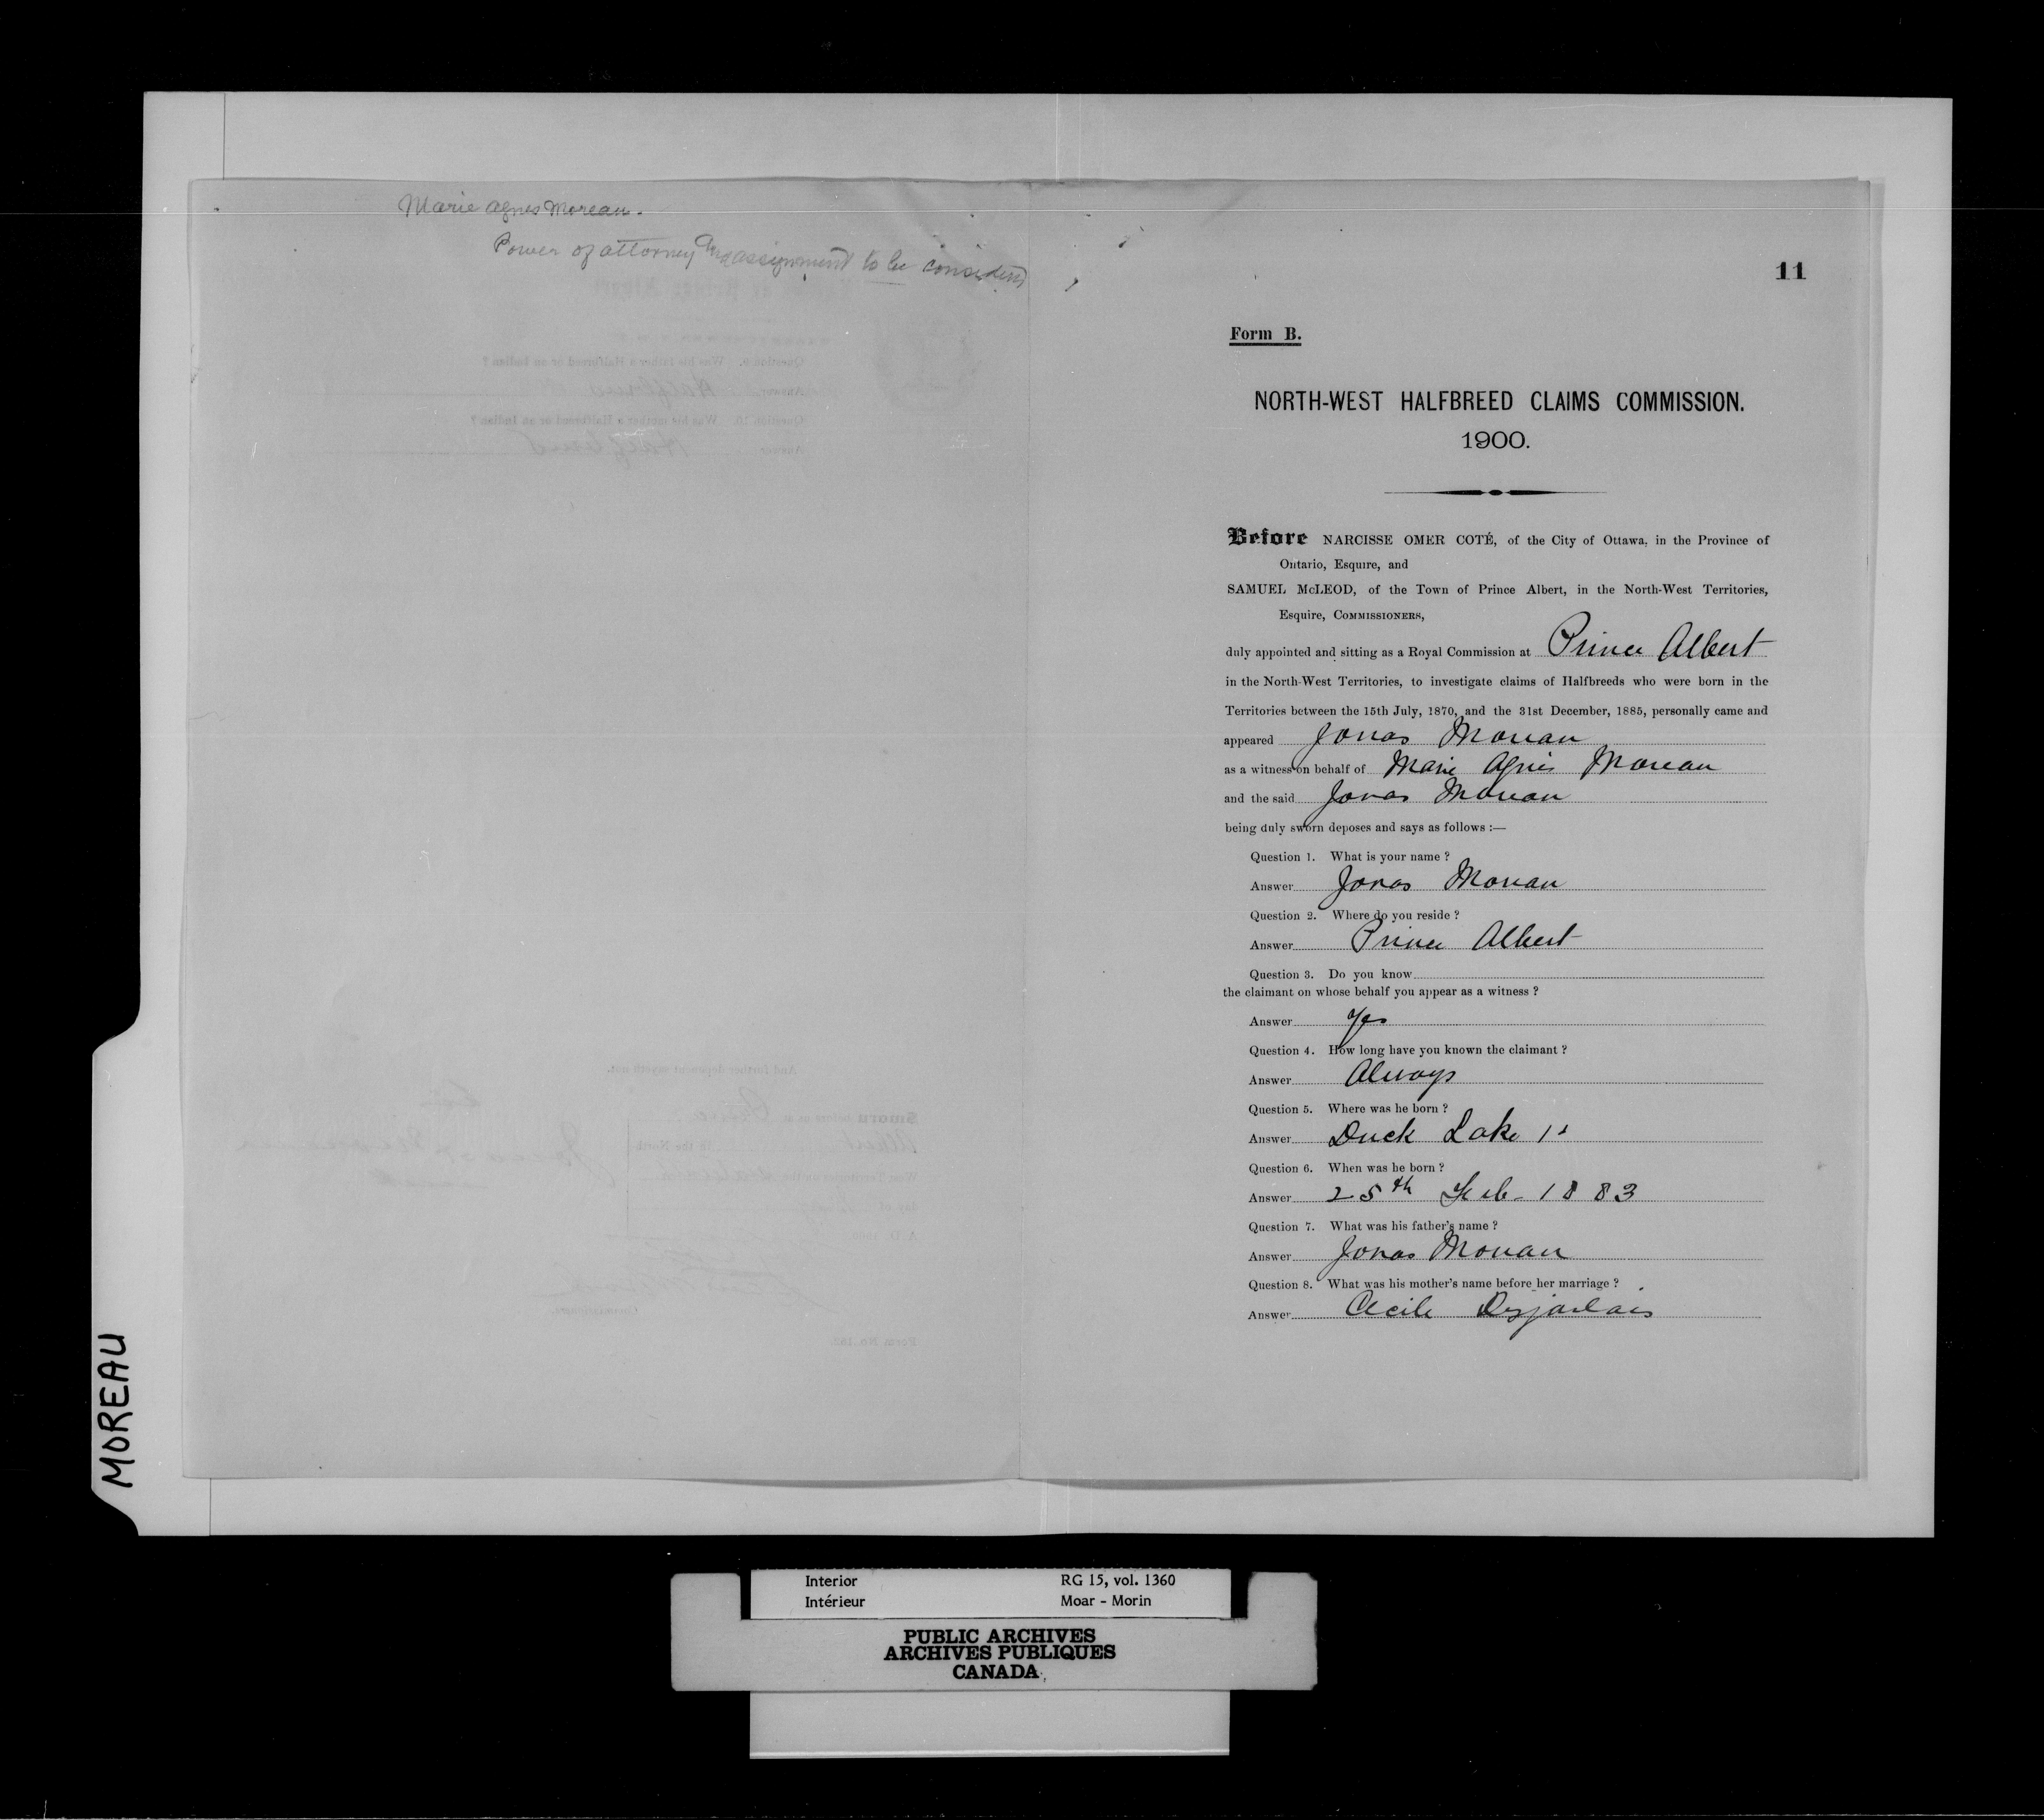 Marie Agnes Moreau.
Power of attorney and assignment to be considered
11
Form B.
NORTH-WEST HALFBREED CLAIMS COMMISSION.
1900.
Before NARCISSE OMER COTÉ, of the City of Ottawa, in the Province of
Ontario, Esquire, and
SAMUEL McLEOD, of the Town of Prince Albert, in the North-West Territories,
Esquire, COMMISSIONERS,
duly appointed and sitting as a Royal Commission at Prince Albert
in the North-West Territories, to investigate claims of Halfbreeds who were born in the
Territories between the 15th July, 1870, and the 31st December, 1885, personally came and
appeared Jonas Moreau
as a witness on behalf of Marie Agnes Moreau
and the said Jonas Moreau
being duly sworn deposes and says as follows :—
Question 1. What is your name ?
Answer Jonas Moreau
Question 2. Where do you reside ?
Answer Prince Albert
Question 3. Do you know
the claimant on whose behalf you appear as a witness ?
Answer Yes
Question 4. How long have you known the claimant ?
Answer Always
Question 5. Where was he born ?
Answer Duck Lake
Question 6. When was he born ?
Answer 25th Feb- 1883
Question 7. What was his father's name ?
Answer Jonas Moreau
Question 8. What was his mother's name before her marriage ?
Answer Cecile Desjarlais
MOREAU
Interior RG 15, vol. 1360
Intérieur Moar - Morin
PUBLIC ARCHIVES
ARCHIVES PUBLIQUES
CANADA